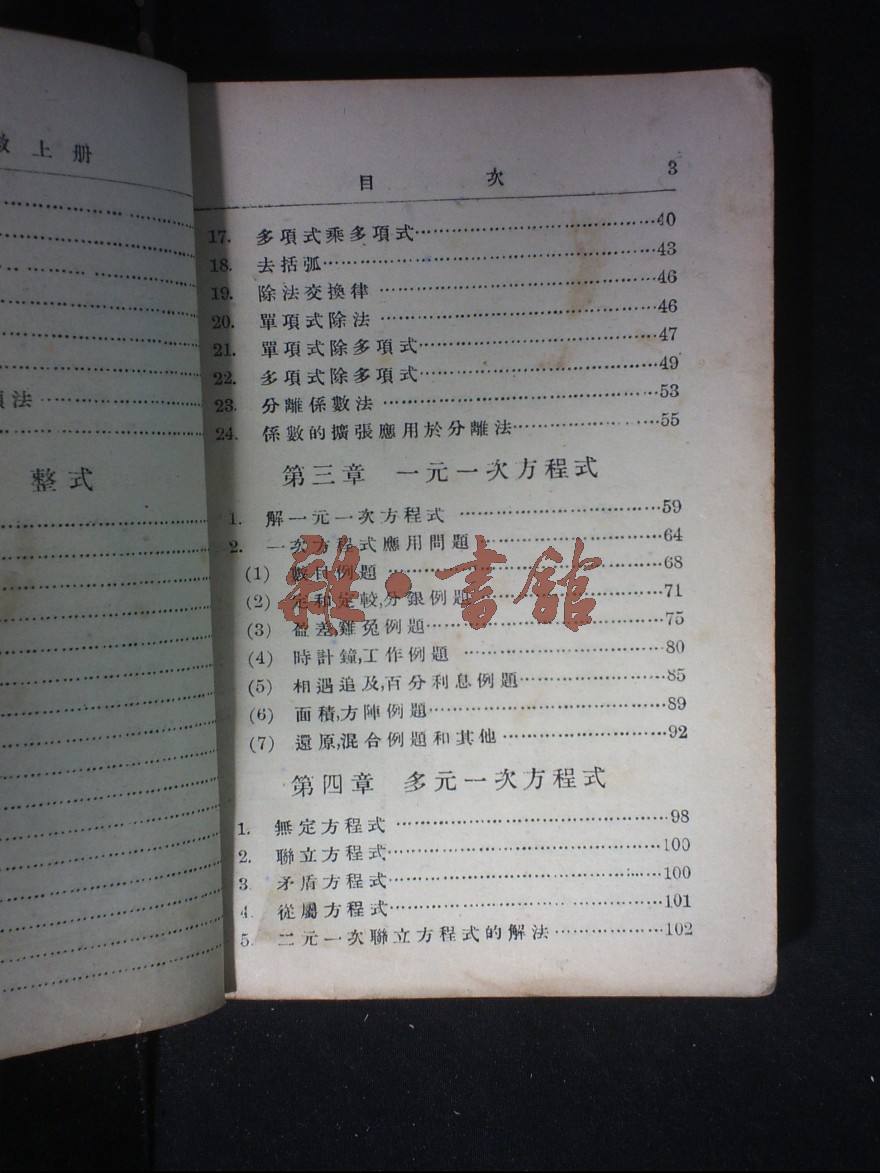 上册
項法
整式
目 次 3
17. 多項式乘多項式……40
18. 去括弧……43
19. 除法交換律……46
20. 單項式除法……46
21. 單項式除多項式……47
22. 多項式除多項式……49
23. 分離係數法……53
24. 係數的擴張應用於分離法……55
第三章 一元一次方程式
1. 解一元一次方程式……59
2. 一次方程式應用問題……64
(1) 數目例題……68
(2) 定和定較,分銀例題……71
(3) 盈差,雞兔例題……75
(4) 時計鐘,工作例題……80
(5) 相遇追及,百分利息例題……85
(6) 面積,方陣例題……89
(7) 還原,混合例題和其他……92
第四章 多元一次方程式
1. 無定方程式……98
2. 聯立方程式……100
3. 矛盾方程式……100
4. 從屬方程式……101
5. 二元一次聯立方程式的解法……102
雜·書館